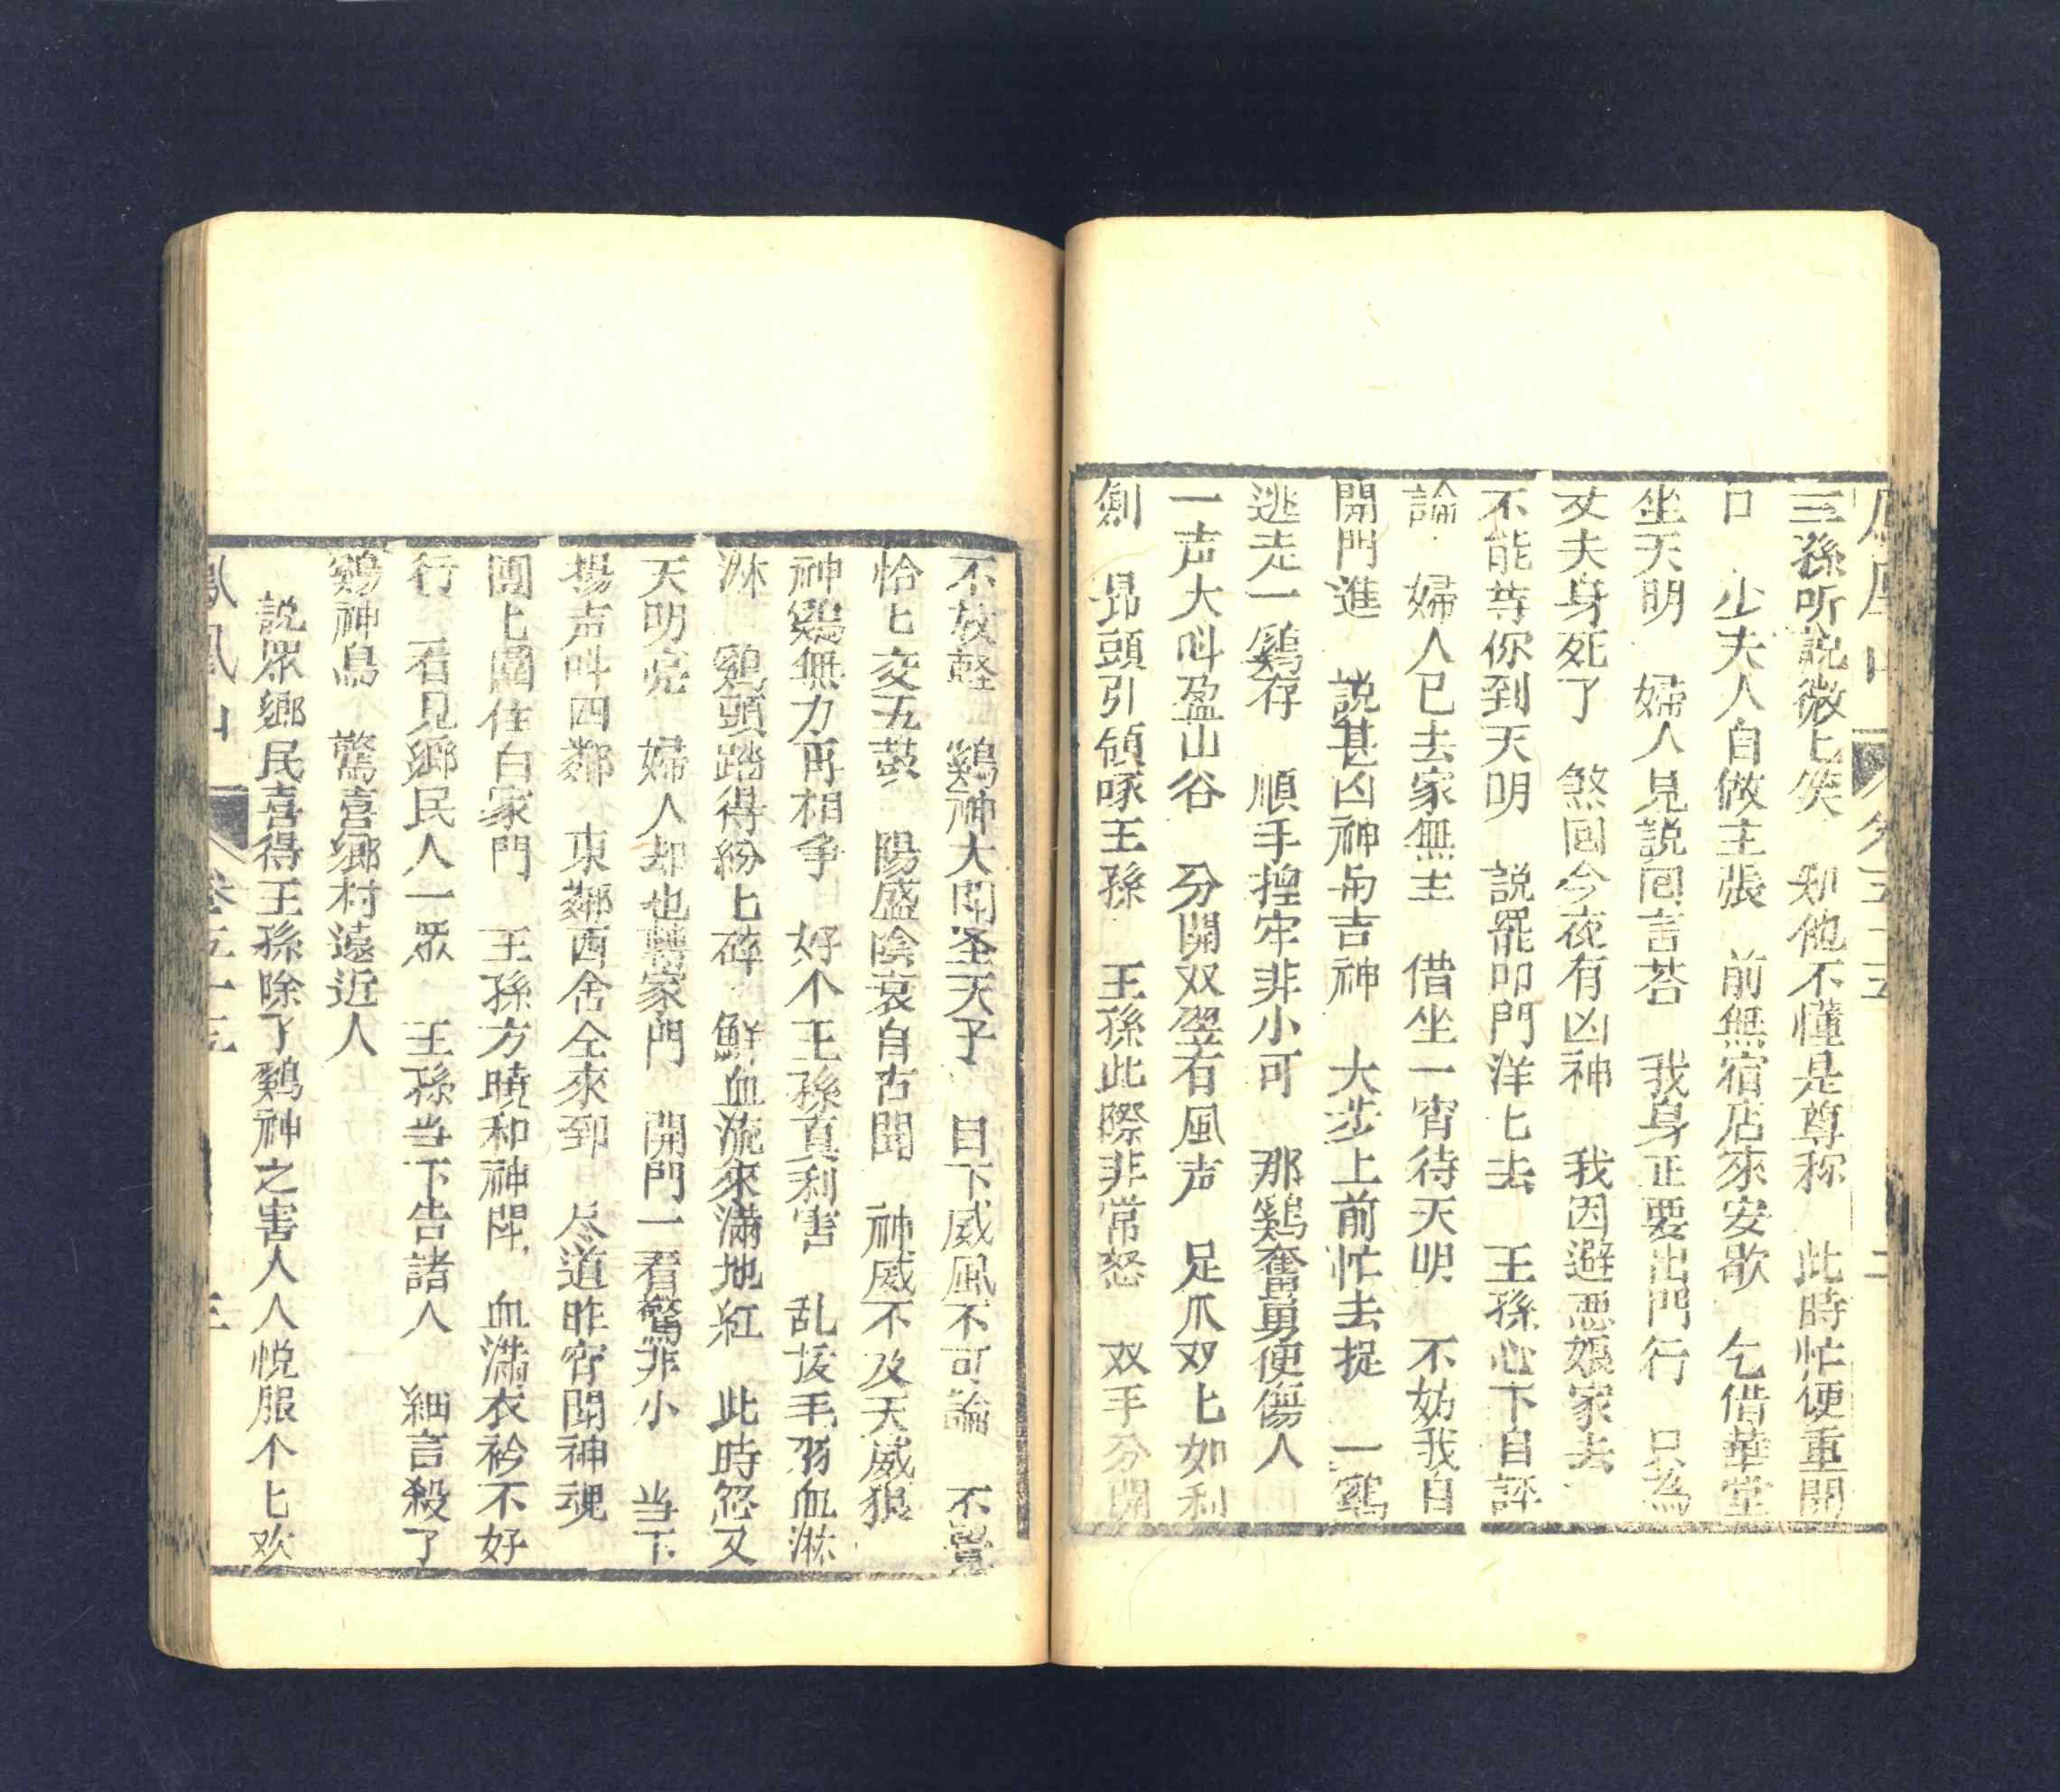 王孫听説微匕笑　知他不懂是尊称　此時忙便重開
口　少夫人自做主張　前無宿店來安歇　乞借華堂
坐天明　婦人見説囘言荅　我身正要出門行　只為
丈夫身死了　煞囘今夜有凶神　我因避惡娘家去
不能等你到天明　説罷叩門洋匕去　王孫心下自評
論　婦人已去家無主　借坐一宵待天明　不妨我自
開門進　説甚凶神与吉神　大步上前忙去捉　一鷄
逃走一鷄存　順手揑牢非小可　那鷄奮勇便傷人
一声大叫盈山谷　分開双翌有風声　足爪双匕如利
劍　昻頭引領啄王孫　王孫此際非常怒　双手分開
不放鬆　鷄神大鬧圣天子　目下威風不可論　不覺
恰匕交五鼓　陽盛陰衰自古聞　神威不及天威狠
神鷄無力再相争　好个王孫真利害　乱拔毛羽血淋
淋　鷄頭踏得紛匕碎　鮮血流來滿地紅　此時忽又
天明亮　婦人却也轉家門　開門一看驚非小　当下
揚声叫四鄰　東鄰西舍全來到　尽道昨宵鬧神魂
團匕圍住白家門　王孫方曉和神鬧　血滿衣衿不好
行　一看見鄉民人一眾　王孫当下告諸人　細言殺了
鷄神鳥　驚喜鄉村遠近人
説眾鄉民喜得王孫除了鷄神之害人人悦服个匕欢
鳳凰山　卷五十五　三